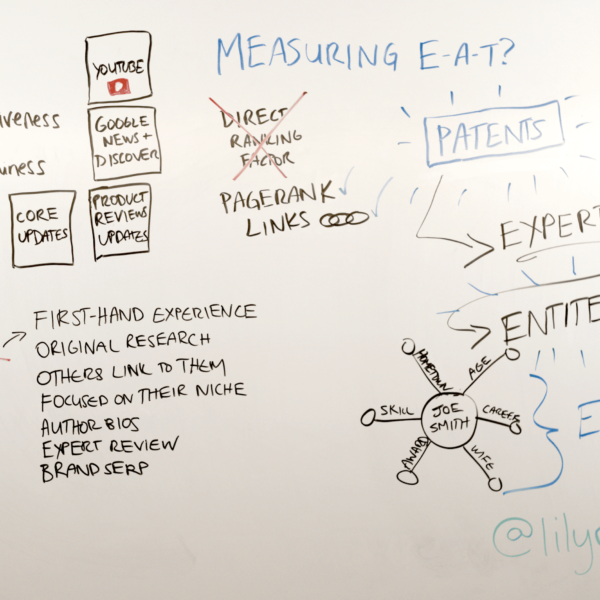 YOUTUBE
GOOGLE
NEWS +
DISCOVER
CORE
UPDATES
PRODUCT
REVIEWS
UPDATES
MEASURING E-A-T?
DIRECT
RANKING
FACTOR
PAGERANK
LINKS
PATENTS
EXPERT
ENTITE
FIRST-HAND EXPERIENCE
ORIGINAL RESEARCH
OTHERS LINK TO THEM
FOCUSED ON THEIR NICHE
AUTHOR BIOS
EXPERT REVIEW
BRAND SERP
HOMETOWN
AGE
SKILL
JOE
SMITH
CAREER
AWARD
WIFE
E
@lily